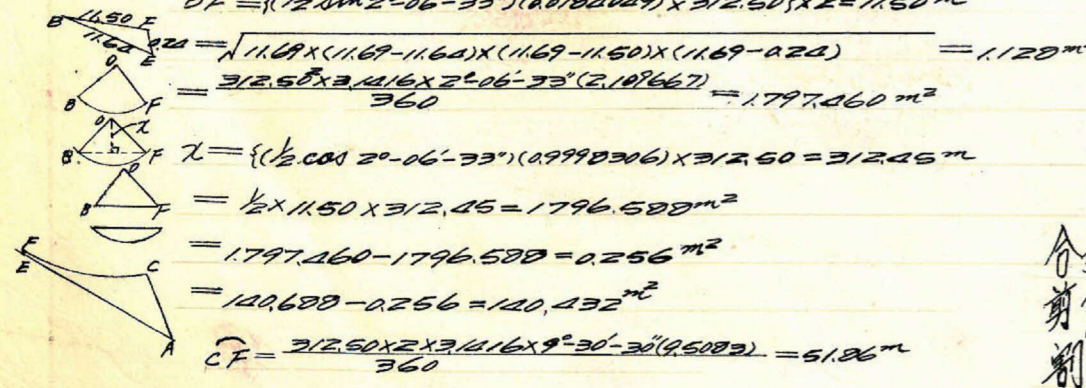 BF = {(1/2 sin 2°-06′-33″)(0.0184049)×312.50}×2=11.50 m
B 11.50 F
11.64 E 0.24 = √11.69×(11.69-11.64)×(11.69-11.50)×(11.69-0.24) = 1.128 m²
O B F = 312.50²×3.1416×2°-06′-33″(2.109667) / 360 = 1.797.460 m²
O x B F x = {(1/2.cos 2°-06′-33″)(0.9998306)×312.50=312.45 m
O B F = 1/2×11.50×312.45=1796.588 m²
= 1.797.460-1796.588=0.256 m²
F E C A = 140.688-0.256=140.432 m²
CF = 312.50×2×3.1416×9°-30′-30″(9.5083) / 360 = 51.86 m
合
剪
割